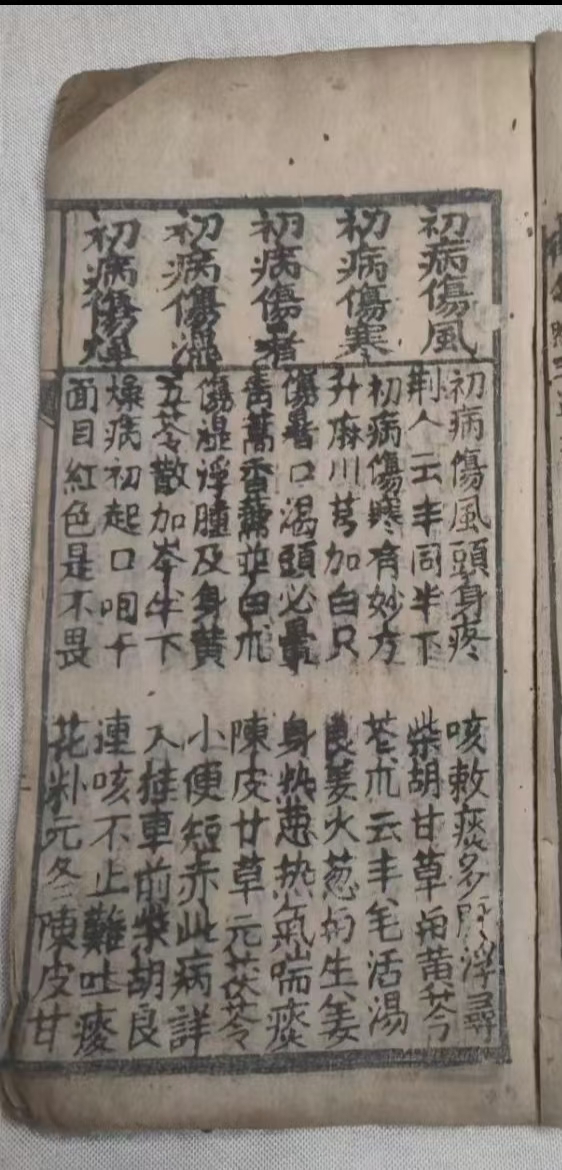 初病傷風
初病傷寒
初病傷暑
初病傷濕
初病傷燥
初病傷風頭身疼
咳敕痰多脉浮尋
荆人云丰同半下
柴胡甘草甪黄芩
初病傷寒有妙方
芲朮云丰羌活湯
升麻川芎加白只
良姜火葱甪生姜
傷暑口渴頭必暈
身热惡热氣喘痰
青蒿香薷並白朮
陳皮甘草元茯苓
傷濕浮腫及身黄
小便短赤此病詳
五苓散加岑半下
入桂車前柴胡良
燥病初起口咽干
連咳不止難吐痰
面目紅色是不畏
花粉元冬陳皮甘